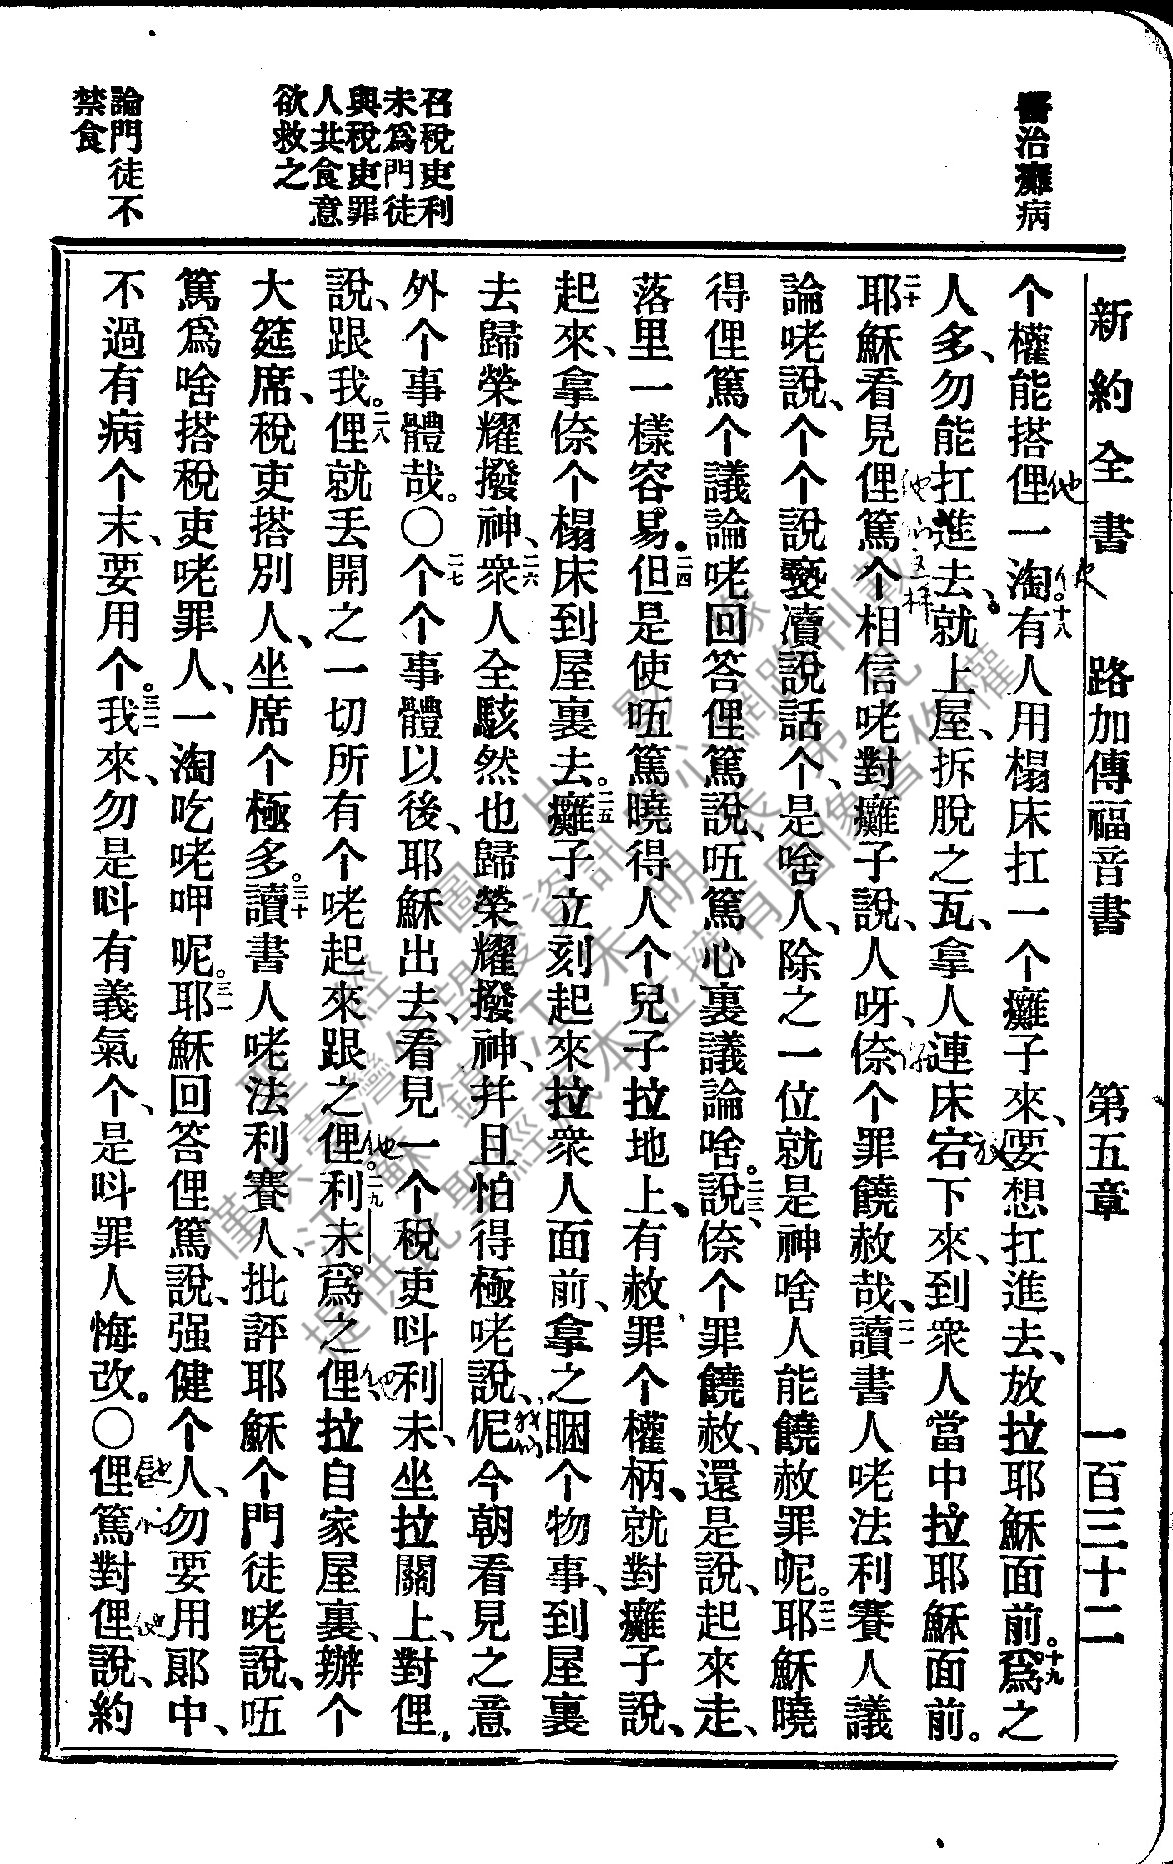 新約全書　路加傳福音書　第五章　一百三十二
醫治癱病
召稅吏利
未爲門徒
與稅吏罪
人共食意
欲救之
論門徒不
禁食
个權能搭俚一淘。十八有人用榻床扛一个癱子來、要想扛進去、放拉耶穌面前。十九爲之
人多、勿能扛進去、就上屋、拆脫之瓦、拿人連床宕下來、到衆人當中拉耶穌面前。
二十耶穌看見俚篤个相信咾對癱子說、人呀、倷个罪饒赦哉、二一讀書人咾法利賽人議
論咾說、个个說褻瀆說話个、是啥人、除之一位就是神啥人能饒赦罪呢。二二耶穌曉
得俚篤个議論咾回答俚篤說、唔篤心裏議論啥。二三說、倷个罪饒赦、還是說、起來走、
落里一樣容易。二四但是使唔篤曉得人个兒子拉地上、有赦罪个權柄、就對癱子說、
起來、拿倷个榻床到屋裏去。二五癱子立刻起來拉衆人面前、拿之睏个物事、到屋裏
去歸榮耀撥神、二六衆人全駭然也歸榮耀撥神、并且怕得極咾說、伲今朝看見之意
外个事體哉。〇二七个个事體以後、耶穌出去、看見一个稅吏呌利未、坐拉關上、對俚
說、跟我。二八俚就丢開之一切所有个咾起來跟之俚。二九利未爲之俚、拉自家屋裏、辦个
大筵席、稅吏搭別人、坐席个極多。三十讀書人咾法利賽人、批評耶穌个門徒咾說、唔
篤爲啥搭稅吏咾罪人、一淘吃咾呷呢。三一耶穌回答俚篤說、强健个人、勿要用郎中、
不過有病个末、要用个。三二我來、勿是呌有義氣个、是呌罪人悔改。〇俚篤對俚說、約
他
他
你
放
他
他
我們
他
他